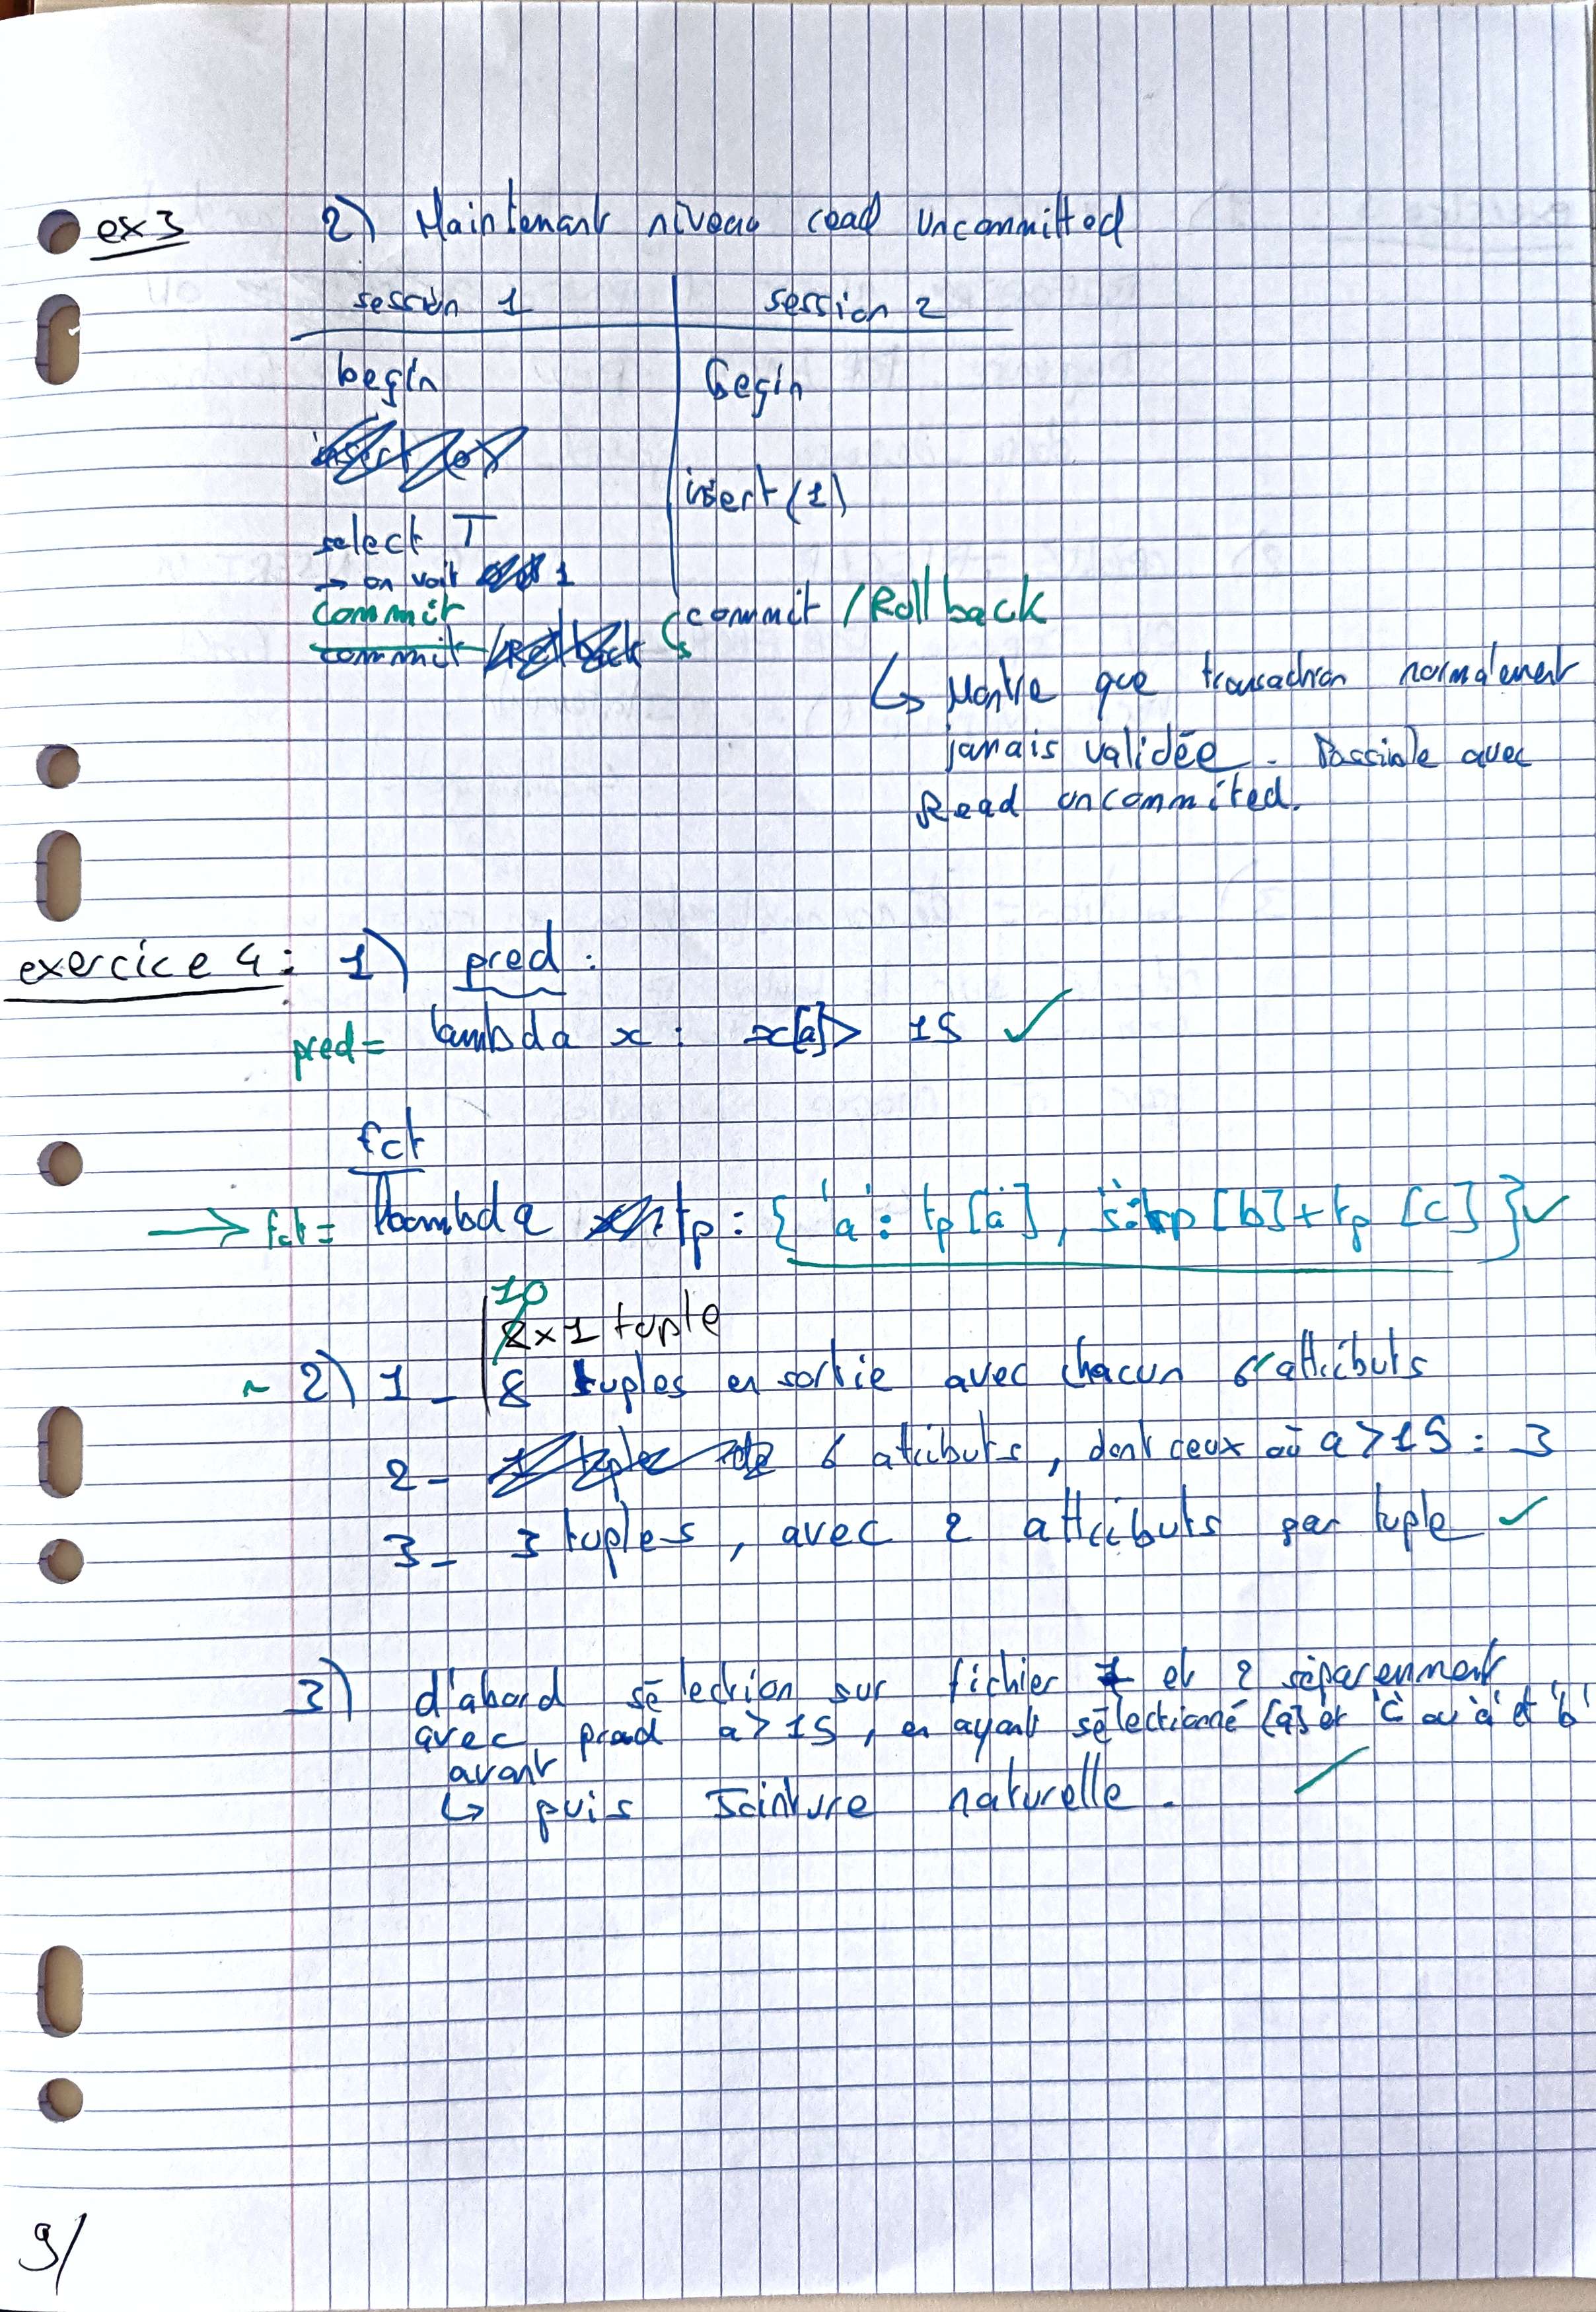 ex3 2) Maintenant niveau read Uncommitted
session 1 session 2
begin begin
insert (1)
select T
→ on voit 1
commit
commit commit / Rollback
↳ Montre que transaction normalement
jamais validée. Possible avec
Read uncommited.
exercice 4 : 1) pred :
pred = lambda x : x[a] > 15 ✓
fct
→ fct = lambda tp : { 'a' : tp[a], s : tp[b] + tp[c] } ✓
10
2 x 1 tuple
~ 2) 1 - 8 tuples en sortie avec chacun 6 attributs
2 - 6 atributs, dont ceux où a > 15 : 3
3 - 3 tuples, avec 2 attributs par tuple ✓
3) d'abord sélection sur fichier 1 et 2 séparemment
avec pred a > 15, en ayant sélectionné [a] et 'c' ou 'a' et 'b'
avant
↳ puis Jointure naturelle. ✓
9/